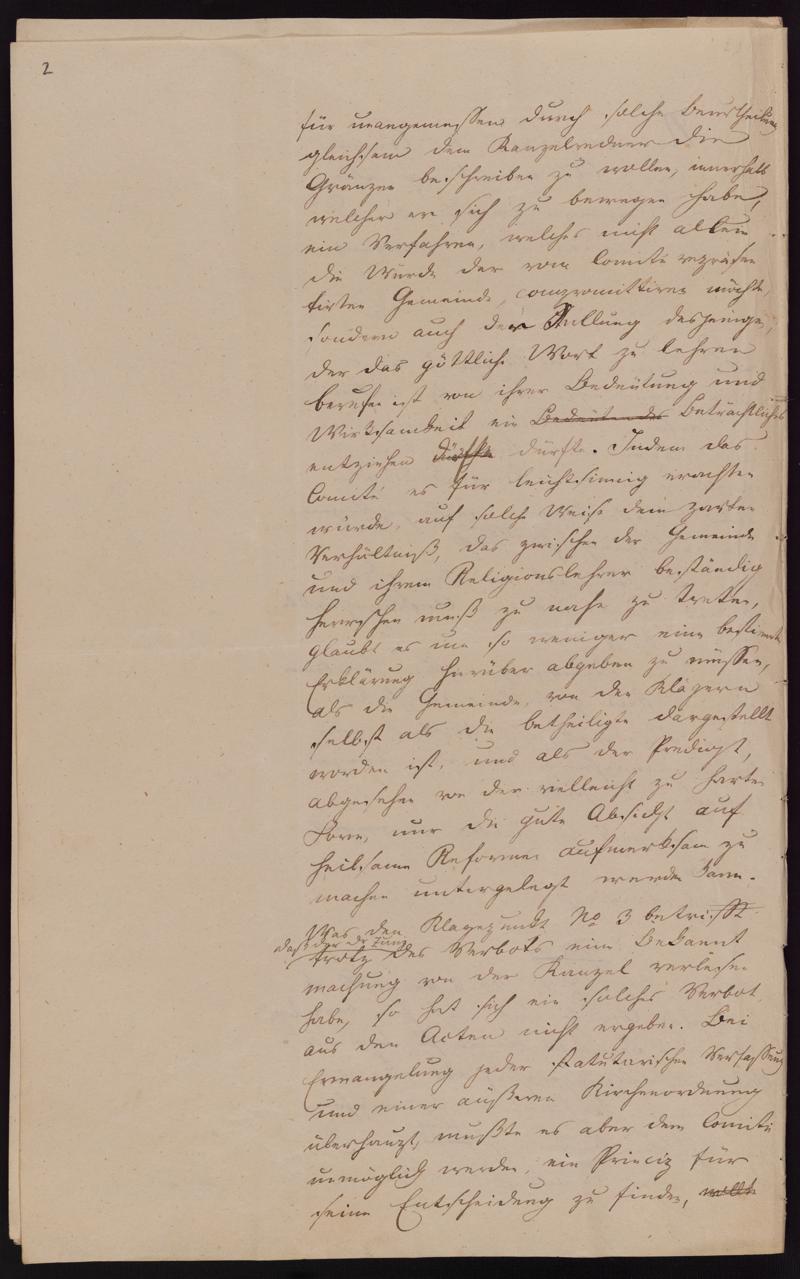 2
für unangemessen durch solche Beurtheilung
gleichsam dem Kanzelredner die
Gränzen beschreiben zu wollen, innerhalb
welcher er sich zu bewegen habe,
ein Verfahren, welches nicht allein
die Würde der vom Comité repräsen
tirten Gemeinde compromittiren möchte,
sondern auch der Stellung desjenigen,
der das göttliche Wort zu lehren
berufen ist von ihrer Bedeutung und
Wirksamkeit ein Bedeutendes Beträchtliches
entziehen dürfte dürfte. Indem das
Comité es für leichtsinnig erachten
würde, auf solche Weise dem zarten
Verhältniß, das zwischen der Gemeinde
und ihrem Religionslehrer beständig
herrschen muß zu nahe zu treten,
glaubt es um so weniger eine bestimmte
Erklärung hierüber abgeben zu müssen,
als die Gemeinde von den Klägern
selbst als die betheiligte dargestellt
worden ist, und als der Predigt,
abgesehen von der vielleicht zu harten
Form, nur die gute Absicht auf
heilsame Reformen aufmerksam zu
machen untergelegt werden kann.
Was den Klagepunkt No 3 betrifft
daß der Dr Zunz
trotz des Verbots eine Bekannt
machung von der Kanzel verlesen
habe, so hat sich ein solches Verbot
aus den Acten nicht ergeben. Bei
Ermangelung jeder statutarischen Verfassung
und einer äußeren Kirchenordnung
überhaupt, mußte es aber dem Comité
unmöglich werden, ein Princip für
seine Entscheidung zu finden,